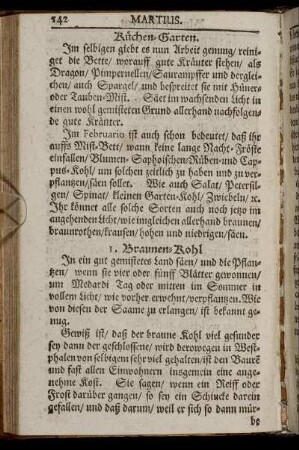 142 MARTIUS.
Küchen-Garten.
Im selbigen giebt es nun Arbeit genung/ reini-
get die Bette/ worauff gute Kräuter stehen/ als
Dragon/ Pimpernellen/ Saurampffer und derglei-
chen/ auch Spargel/ und bespreitet sie mit Hüner-
oder Tauben-Mist. Säet im wachsenden Licht in
einen wohl gemisteten Grund allerhand nachfolgen-
de gute Kräuter.
Im Februario ist auch schon bedeutet/ daß ihr
auffs Mist-Bett/ wann keine lange Nacht-Fröste
einfallen/ Blumen-Saphoischen-Rüben-und Cap-
pus-Kohl/ um solchen zeitlich zu haben und zu ver-
pflantzen/ säen sollet. Wie auch Salat/ Petersil-
gen/ Spinat/ kleinen Garten-Kohl/ Zwiebeln/ ꝛc.
Ihr könnet alle solche Sorten auch noch jetzo im
angehenden Licht/ wie imgleichen allerhand braunen/
braunrothen/ krausen/ hohen und niedrigen/ säen.
1. Braunen-Kohl
In ein gut gemistetes Land säen/ und die Pflan-
tzen/ wenn sie vier oder fünff Blätter gewonnen/
um Medardi Tag oder mitten im Sommer in
vollem Licht/ wie vorher erwehnt/ verpflantzen. Wie
von diesen der Saame zu erlangen/ ist bekannt ge-
nug.
Gewiß ist/ daß der braune Kohl viel gesunder
sey dann der geschlossene/ wird derowegen in West-
phalen von selbigem sehr viel gehalten/ ist den Baurē
und fast allen Einwohnern insgemein eine ange-
nehme Kost. Sie sagen/ wenn ein Reiff oder
Frost darüber gangen/ so sey ein Schincke darein
gefallen/ und daß darum/ weil er sich so dann mür-
be